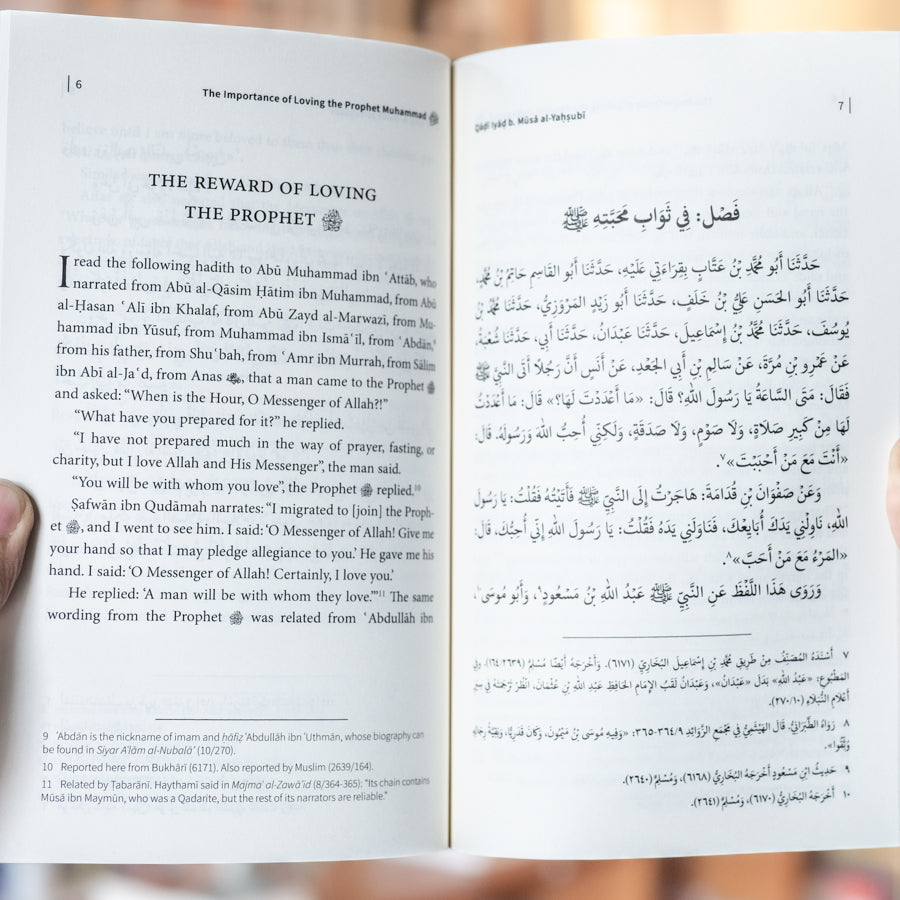 6
The Importance of Loving the Prophet Muhammad ﷺ
THE REWARD OF LOVING
THE PROPHET ﷺ
I read the following hadith to Abū Muhammad ibn ʿAttāb, who
narrated from Abū al-Qāsim Ḥātim ibn Muhammad, from Abū
al-Ḥasan ʿAlī ibn Khalaf, from Abū Zayd al-Marwazī, from Mu-
hammad ibn Yūsuf, from Muhammad ibn Ismāʿīl, from ʿAbdān,⁹
from his father, from Shuʿbah, from ʿAmr ibn Murrah, from Sālim
ibn Abī al-Jaʿd, from Anas, that a man came to the Prophet ﷺ
and asked: “When is the Hour, O Messenger of Allah?!”
“What have you prepared for it?” he replied.
“I have not prepared much in the way of prayer, fasting, or
charity, but I love Allah and His Messenger”, the man said.
“You will be with whom you love”, the Prophet ﷺ replied.¹⁰
Ṣafwān ibn Qudāmah narrates: “I migrated to [join] the Proph-
et ﷺ, and I went to see him. I said: ‘O Messenger of Allah! Give me
your hand so that I may pledge allegiance to you.’ He gave me his
hand. I said: ‘O Messenger of Allah! Certainly, I love you.’
He replied: ‘A man will be with whom they love.’”¹¹ The same
wording from the Prophet ﷺ was related from ʿAbdullāh ibn
9 ʿAbdān is the nickname of imam and ḥāfiẓ ʿAbdullāh ibn ʿUthmān, whose biography can
be found in Siyar Aʿlām al-Nubalāʾ (10/270).
10 Reported here from Bukhārī (6171). Also reported by Muslim (2639/164).
11 Related by Ṭabarānī. Haythamī said in Majmaʿ al-Zawāʾid (8/364-365): “Its chain contains
Mūsā ibn Maymūn, who was a Qadarite, but the rest of its narrators are reliable.”
Qāḍī Iyāḍ b. Mūsā al-Yaḥṣubī
7
فَصْل: فِي ثَوَابِ مَحَبَّتِهِ ﷺ
حَدَّثَنَا أَبُو مُحَمَّدِ بْنُ عَتَّابٍ بِقِرَاءَتِي عَلَيْهِ، حَدَّثَنَا أَبُو القَاسِمِ حَاتِمُ بْنُ مُحَمَّدٍ،
حَدَّثَنَا أَبُو الحَسَنِ عَلِيُّ بْنُ خَلَفٍ، حَدَّثَنَا أَبُو زَيْدٍ المَرْوَزِيُّ، حَدَّثَنَا مُحَمَّدُ بْنُ
يُوسُفَ، حَدَّثَنَا مُحَمَّدُ بْنُ إِسْمَاعِيلَ، حَدَّثَنَا عَبْدَانُ، حَدَّثَنَا أَبِي، حَدَّثَنَا شُعْبَةُ،
عَنْ عَمْرِو بْنِ مُرَّةَ، عَنْ سَالِمِ بْنِ أَبِي الجَعْدِ، عَنْ أَنَسٍ أَنَّ رَجُلًا أَتَى النَّبِيَّ ﷺ
فَقَالَ: مَتَى السَّاعَةُ يَا رَسُولَ اللهِ؟ قَالَ: «مَا أَعْدَدْتَ لَهَا؟» قَالَ: مَا أَعْدَدْتُ
لَهَا مِنْ كَبِيرِ صَلَاةٍ، وَلَا صَوْمٍ، وَلَا صَدَقَةٍ، وَلَكِنِّي أُحِبُّ اللهَ وَرَسُولَهُ. قَالَ:
«أَنْتَ مَعَ مَنْ أَحْبَبْتَ»٧.
وَعَنْ صَفْوَانَ بْنِ قُدَامَةَ: هَاجَرْتُ إِلَى النَّبِيِّ ﷺ فَأَتَيْتُهُ فَقُلْتُ: يَا رَسُولَ
اللهِ، نَاوِلْنِي يَدَكَ أُبَايِعْكَ، فَنَاوَلَنِي يَدَهُ فَقُلْتُ: يَا رَسُولَ اللهِ إِنِّي أُحِبُّكَ، قَالَ:
«المَرْءُ مَعَ مَنْ أَحَبَّ»٨.
وَرَوَى هَذَا اللَّفْظَ عَنِ النَّبِيِّ ﷺ عَبْدُ اللهِ بْنُ مَسْعُودٍ٩، وَأَبُو مُوسَى١٠،
٧ أَسْنَدَهُ المُصَنِّفُ مِنْ طَرِيقِ مُحَمَّدِ بْنِ إِسْمَاعِيلَ البُخَارِيِّ (٦١٧١). وَأَخْرَجَهُ أَيْضًا مُسْلِمٌ (١٦٤/٢٦٣٩). وفِي
المَطْبُوعِ: «عَبْدُ اللهِ» بَدَلَ «عَبْدَانُ»، وَعَبْدَانُ لَقَبُ الإِمَامِ الحَافِظِ عَبْدِ اللهِ بْنِ عُثْمَانَ. انْظُرْ تَرْجَمَتَهُ فِي سِيَرِ
أَعْلَامِ النُّبَلَاءِ (٢٧٠/١٠).
٨ رَوَاهُ الطَّبَرَانِيُّ. قَالَ الهَيْثَمِيُّ فِي مَجْمَعِ الزَّوَائِدِ ٣٦٤/٩-٣٦٥: «وَفِيهِ مُوسَى بْنُ مَيْمُونٍ، وَكَانَ قَدَرِيًّا، وَبَقِيَّةُ رِجَالِهِ
وُثِّقُوا».
٩ حَدِيثُ ابْنِ مَسْعُودٍ أَخْرَجَهُ البُخَارِيُّ (٦١٦٨)، وَمُسْلِمٌ (٢٦٤٠).
١٠ أَخْرَجَهُ البُخَارِيُّ (٦١٧٠)، وَمُسْلِمٌ (٢٦٤١).